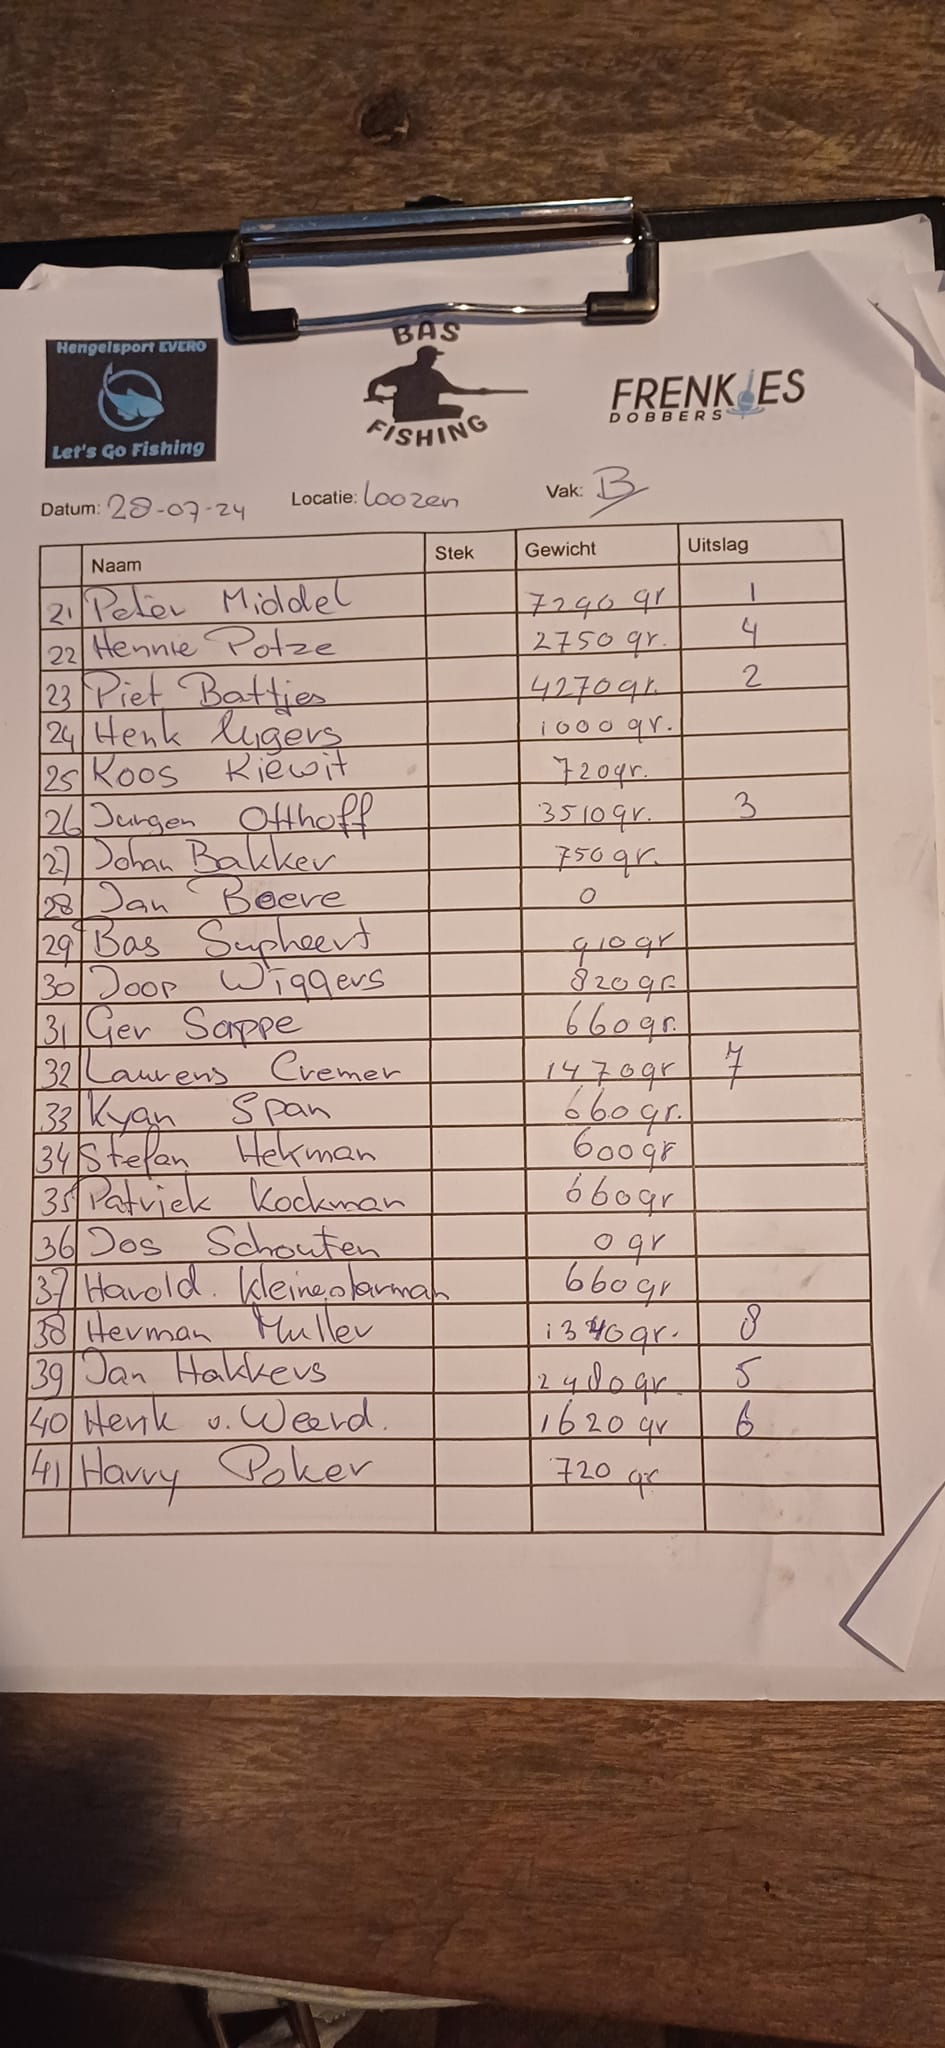 BAS
FISHING
Hengelsport EVERO
Let's Go Fishing
FRENKIES
DOBBERS
Datum: 28-07-24 Locatie: Loozen Vak: B
Naam Stek Gewicht Uitslag
21 Peter Middel 7290 gr 1
22 Hennie Potze 2750 gr. 4
23 Piet Battjes 4270 gr. 2
24 Henk 1000 gr.
25 Koos Kiewit 720 gr.
26 Jurgen Otthoff 3510 gr. 3
27 Johan Bakker 750 gr.
28 Jan Boere 0
29 Bas Supheert 910 gr
30 Joop Wiggers 820 gr
31 Ger Sappe 660 gr.
32 Laurens Cremer 1470 gr 7
33 Kyan Span 660 gr.
34 Stefan Hekman 600 gr
35 Patriek Kockman 660 gr
36 Jos Schouten 0 gr
37 Harold. 660 gr
38 Herman Muller 1340 gr. 8
39 Jan Hakkers 2480 gr. 5
40 Henk v. Weerd. 1620 gr 6
41 Harry Poker 720 gr